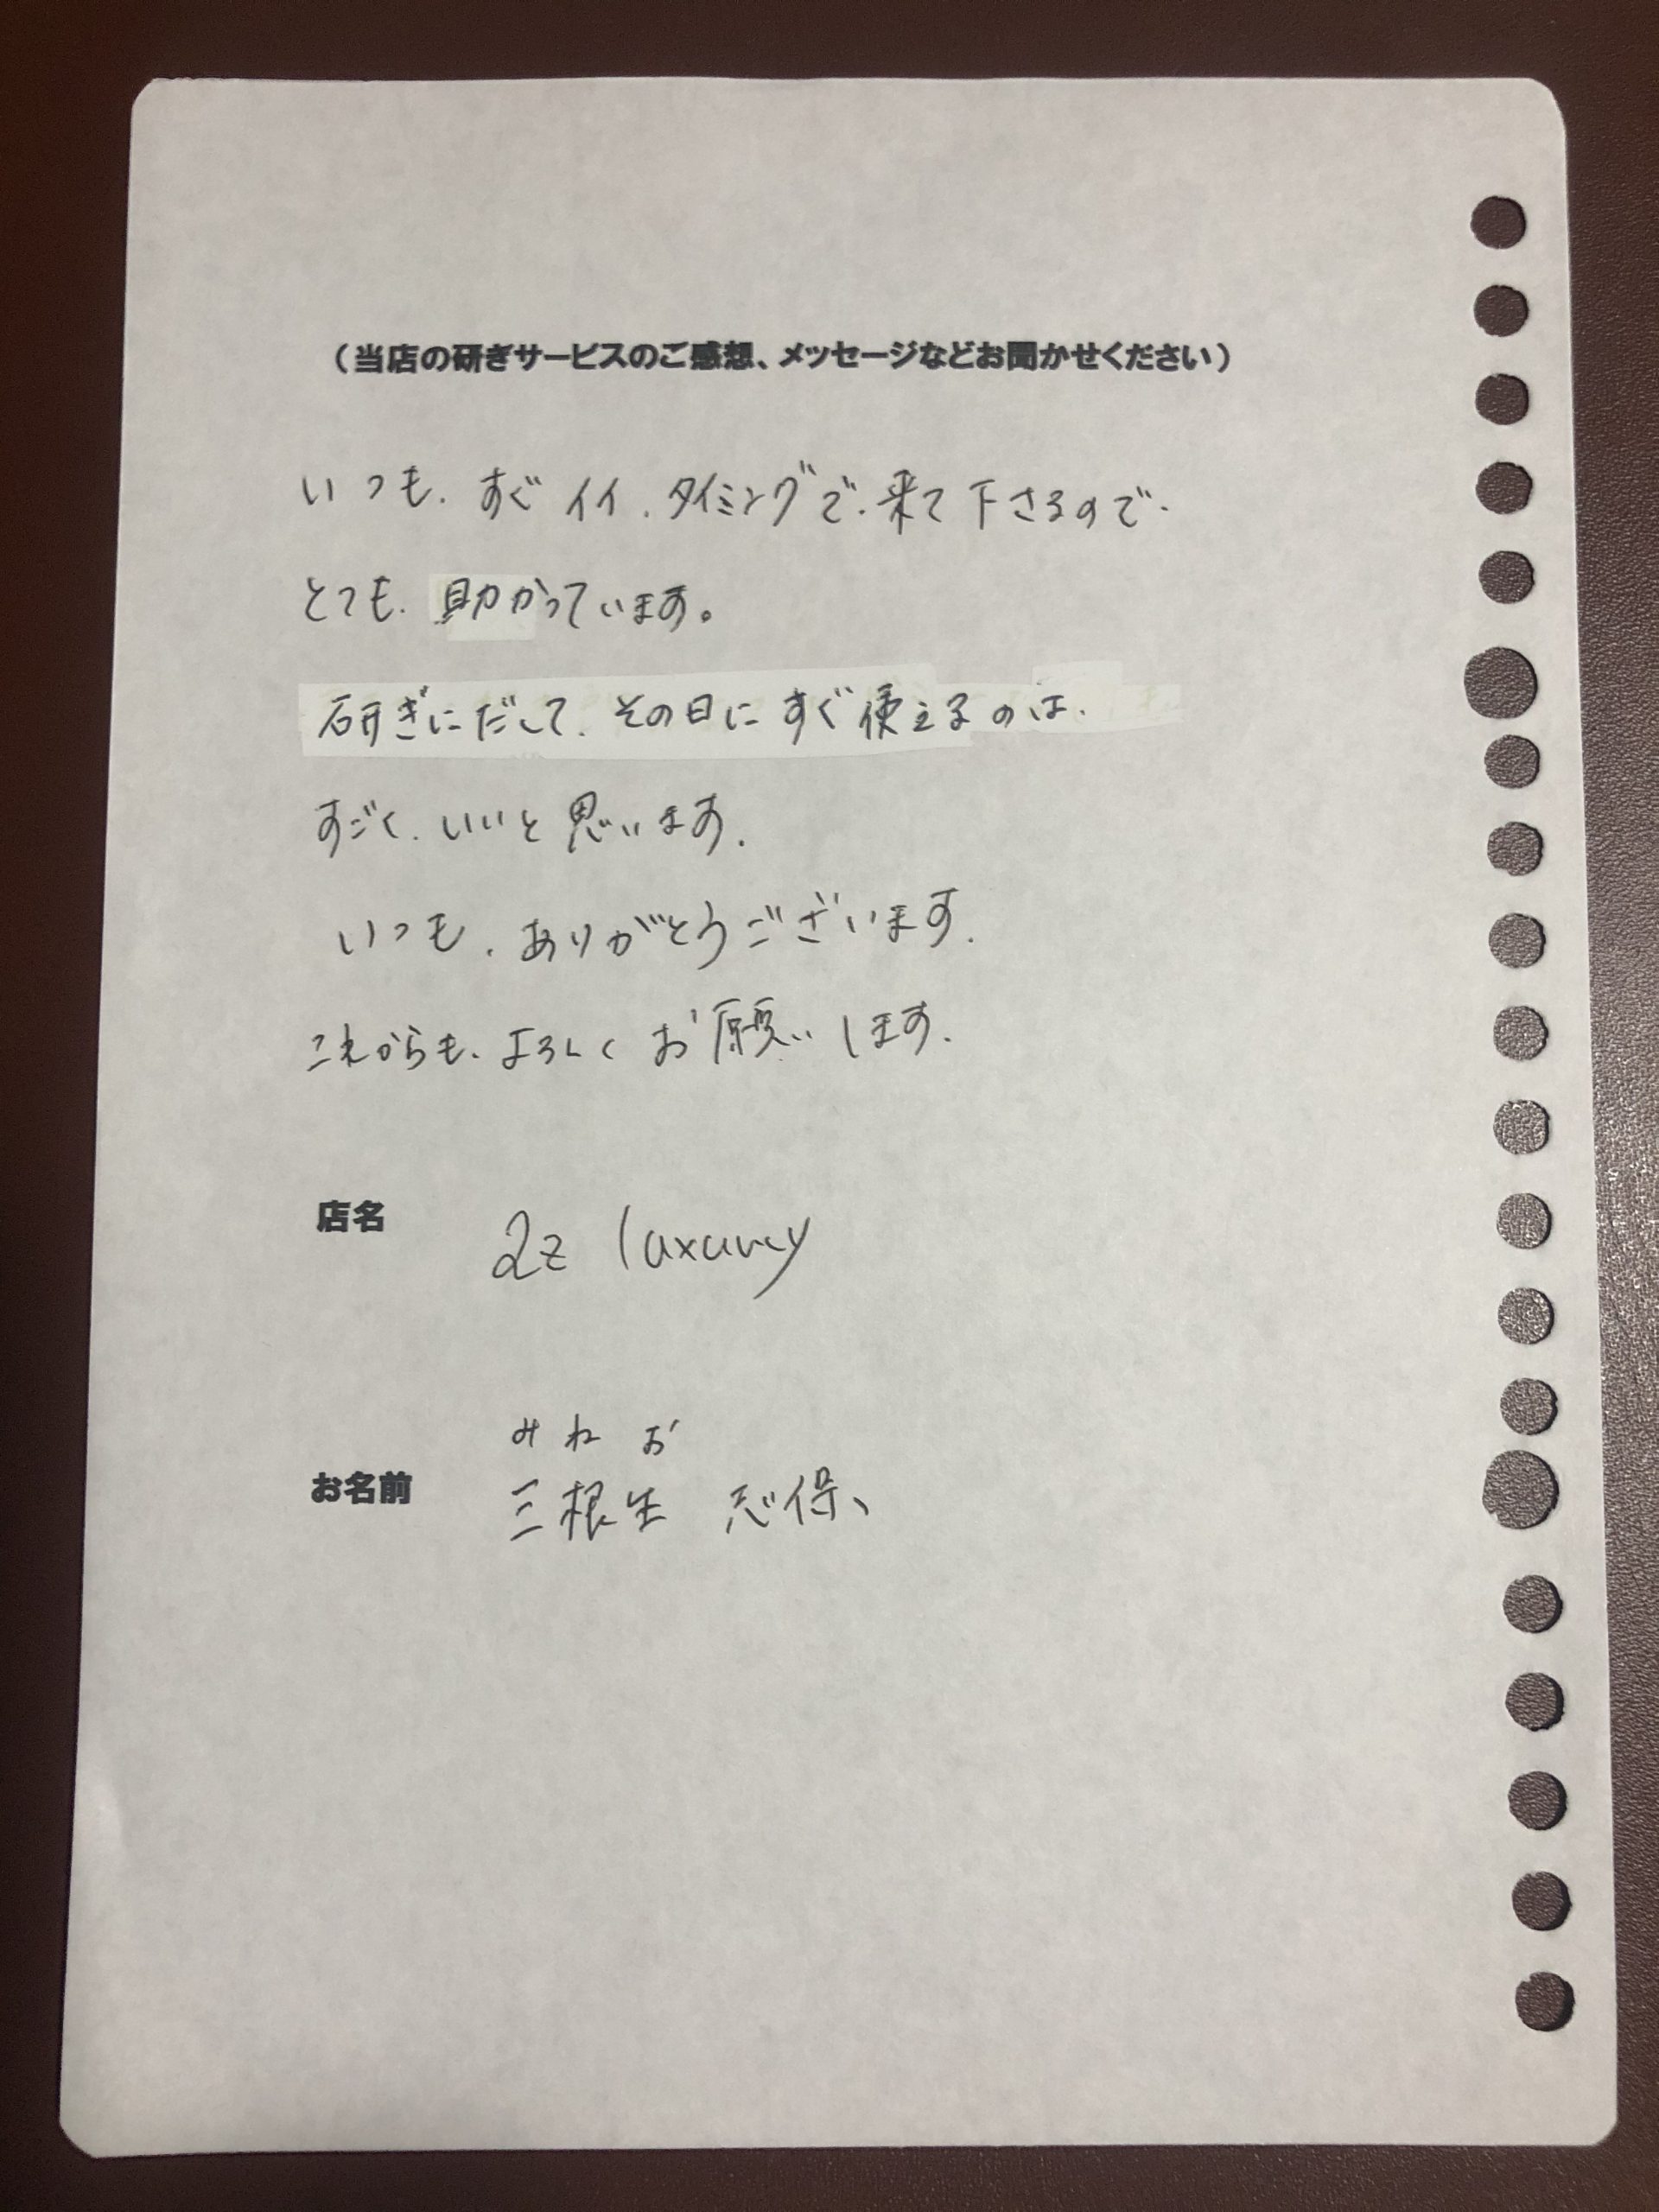 （当店の研ぎサービスのご感想、メッセージなどお聞かせください）
いつも、すぐイイ、タイミングで、来て下さるので、
とても、助かっています。
研ぎにだして、その日にすぐ使えるのは、
すごく、いいと思います。
いつも、ありがとうございます。
これからも、よろしくお願いします。
店名 2z luxury
みねお
お名前 三根生 志保、